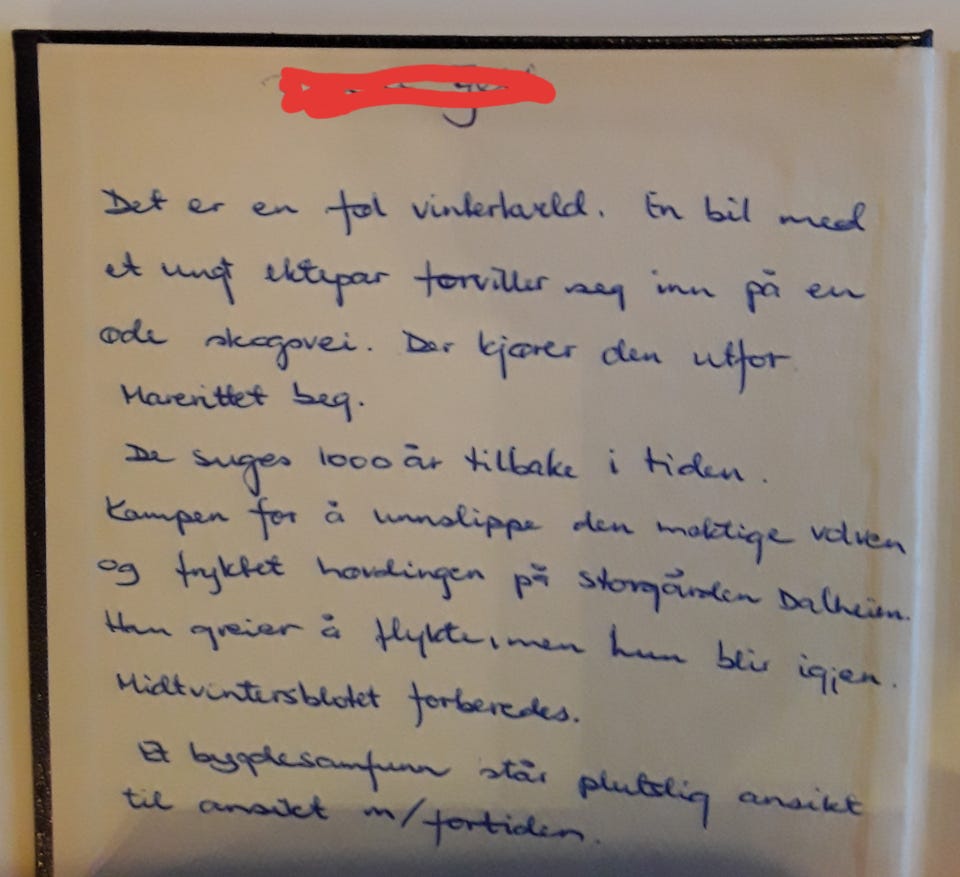 Det er en føl vinterkveld. En bil med
et ungt ektepar forviller seg inn på en
øde skogsvei. Der kjører den utfor.
Marerittet beg.
De suges 1000 år tilbake i tiden.
Kampen for å unnslippe den mektige volven
og fryktet høvdingen på storgården Dalheim.
Han greier å flykte, men hun blir igjen.
Midtvintersblotet forberedes.
Et bygdesamfunn står plutslig ansikt
til ansikt m/fortiden.